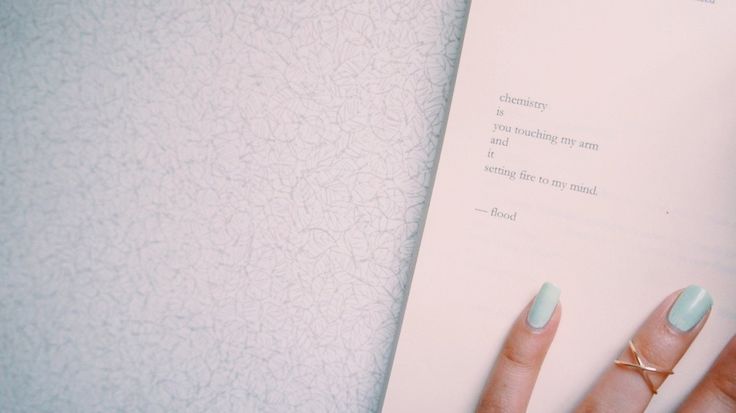 chemistry
is
you touching my arm
and
it
setting fire to my mind.
— flood